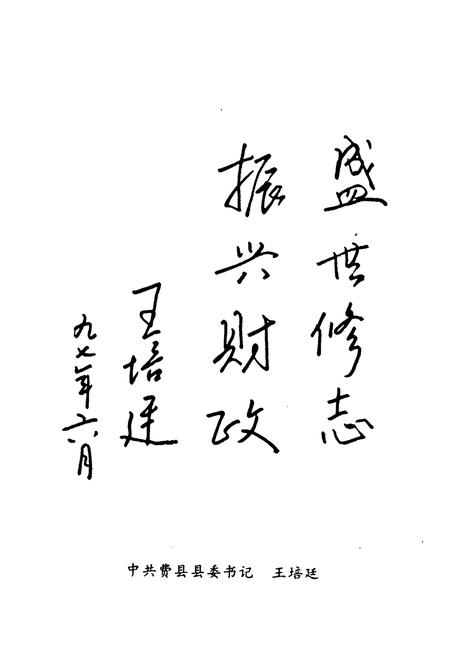 盛世修志
振兴财政
王培廷
九七年六月
中共费县县委书记 王培廷